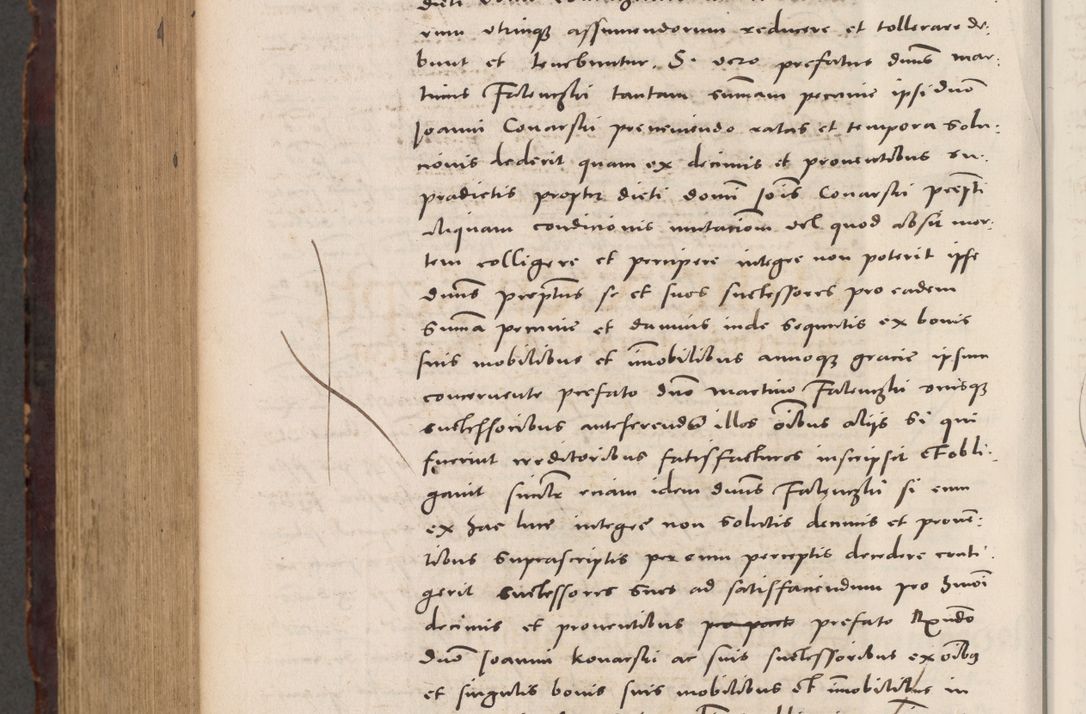 rum utrinque assumendorum reducere et tollerare de:
bunt et tenebuntur. S. vero prefatus duns mar:
tinus Falenczki tantam summam pecunie ipsi duo
Joanni Conarski preveniendo ratas et tempora solu:
cionis dederit quam ex decimis et proventibus su:
pradictis propter dicti domi Jois Conarski precepti
aliquam condicionis mutacionem vel quod absit mor:
tem colligere et percipere integre non poterit ipse
duns preptus se et suos successores pro eadem
summa pecunie et damnis inde sequutis ex bonis
suis mobilibus et imobilibus annoque gracie ipsum
concernente prefato duo martino Falenczki eiusque
successoribus anteferendo illos oibus aliis si qui
fuerint creditoribus satisfacturos inscripsit et obli:
gavit simlr eciam idem duns Falenczki si eum
ex hac luce integre non solutis decimis et proven:
tibus suprascriptis per eum perceptis decedere conti:
gerit successores suos ad satisfaciendum pro hmoi
decimis et proventibus prefato Rxndo
duo Joanni Konarski ac suis successoribus ex oibus
et singulis bonis suis mobilibus et imobilibus in